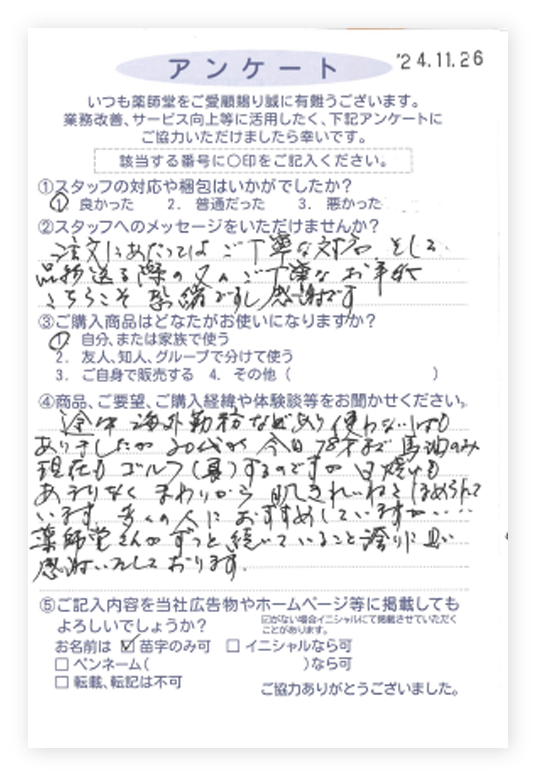 アンケート
'24.11.26
いつも薬師堂をご愛顧賜り誠に有難うございます。
業務改善、サービス向上等に活用したく、下記アンケートに
ご協力いただけましたら幸いです。
該当する番号に〇印をご記入ください。
①スタッフの対応や梱包はいかがでしたか?
1. 良かった 2. 普通だった 3. 悪かった
②スタッフへのメッセージをいただけませんか?
注文にあたってはご丁寧な対応、そして
品物送る際の又々ご丁寧なお手紙
こちらこそ恐縮ですし感謝です
③ご購入商品はどなたがお使いになりますか?
1. 自分、または家族で使う
2. 友人、知人、グループで分けて使う
3. ご自身で販売する 4. その他( )
④商品、ご要望、ご購入経緯や体験談等をお聞かせください。
途中海外勤務などあり使わない時も
ありましたが20代から今日78才まで馬油のみ
現在もゴルフ(夏)するのですが日焼けも
あまりなくまわりから肌きれいねとほめられて
います。多くの人におすすめしていますが・・・・
薬師堂さんがずっと続いていること誇りに思い
感謝いたしております。
⑤ご記入内容を当社広告物やホームページ等に掲載しても
よろしいでしょうか?
☑がない場合イニシャルにて掲載させていただく
ことがあります。
お名前は ☑ 苗字のみ可 □ イニシャルなら可
□ ペンネーム( )なら可
□ 転載、転記は不可
ご協力ありがとうございました。